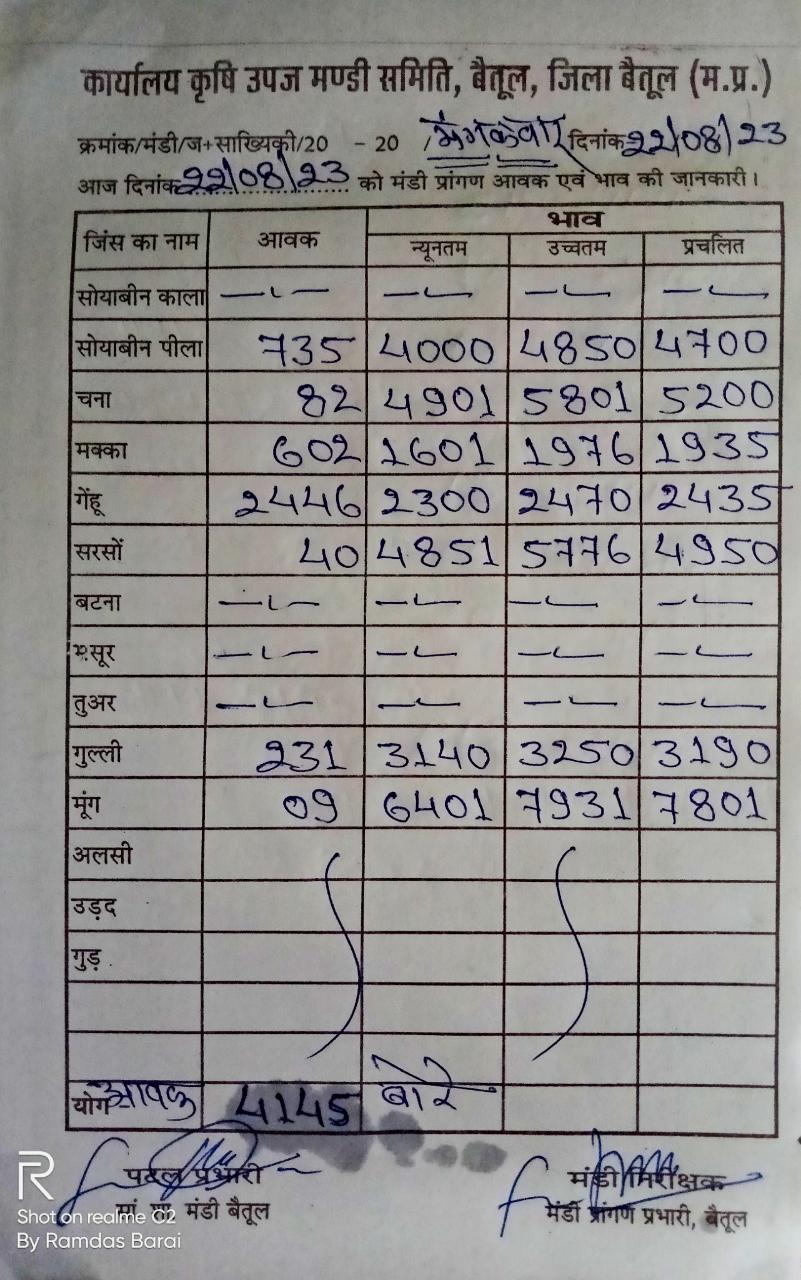 कार्यालय कृषि उपज मण्डी समिति, बैतूल, जिला बैतूल (म.प्र.)
क्रमांक/मंडी/ज+साख्यिकी/20 - 20 / मंगळवार दिनांक 22/08/23
आज दिनांक 22/08/23 को मंडी प्रांगण आवक एवं भाव की जानकारी।
जिंस का नाम आवक भाव
न्यूनतम उच्चतम प्रचलित
सोयाबीन काला — — — —
सोयाबीन पीला 735 4000 4850 4700
चना 82 4901 5801 5200
मक्का 602 1601 1976 1935
गेंहू 2446 2300 2470 2435
सरसों 40 4851 5776 4950
बटना — — — —
मसूर — — — —
तुअर — — — —
गुल्ली 231 3140 3250 3190
मूंग 09 6401 7931 7801
अलसी
उड़द
गुड़
योग आवक 4145 बोरे
प्रभारी
मंडी बैतूल
मंडी निरीक्षक
मंडी प्रांगण प्रभारी, बैतूल
R
Shot on realme C2
By Ramdas Barai